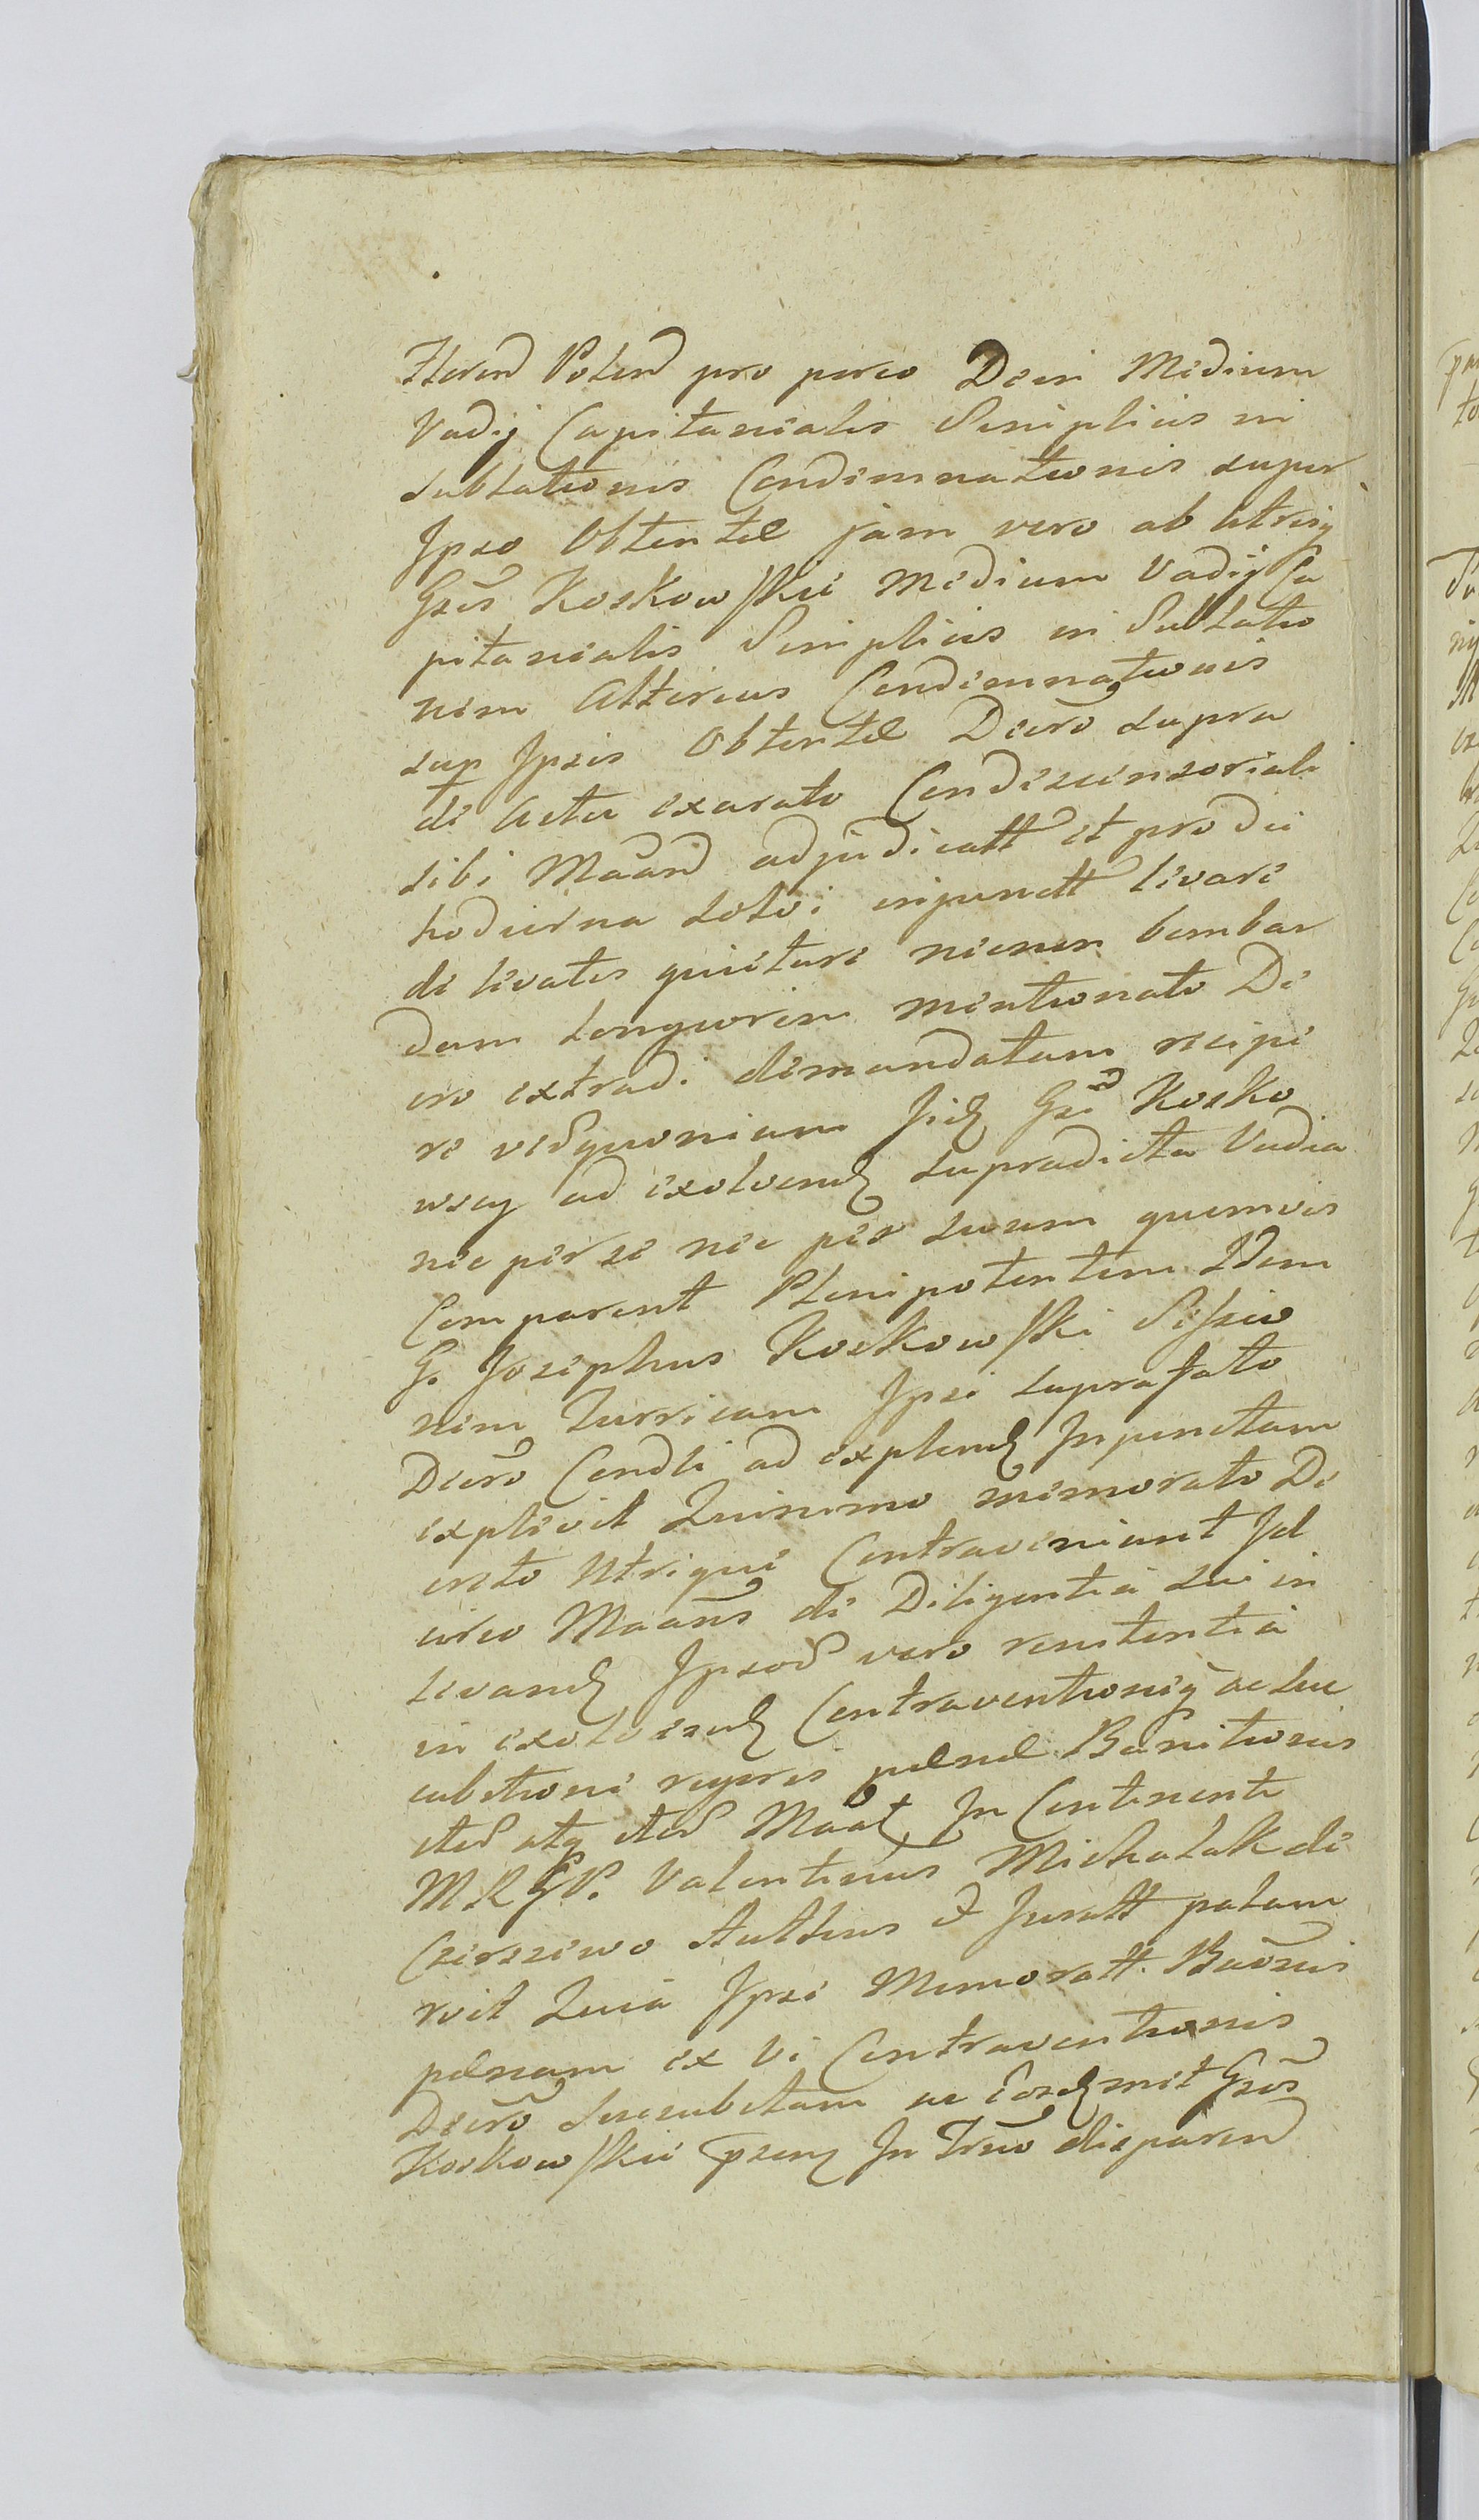 Iteren Poten pro parco Dein Medium
Vadij Capitanealis Simplicis in
sublationis Condemnationis super
Ipso Obtentæ jam vero ab utrisq
Gsis Koskowskii Medium Vadij Ca
pitanealis Simplicis in Sublatio
nem Alterius Condemnationis
sup Ipsis Obtentæ Decro supra
de Actu exarato Condescensoriali
sibi Maand adjudicatt et pro die
hodierna solvi injunctt levare
de levatis quietare necnon bombar
dam longiorem mentionato De
cro extradi demandatam recipe
re vedquoniam Gsi Kosko
wscy ad exolvend supradicta Vadia
nec per se nec per suum quemvis
Comparent Plenipotentem Idem
G. Josephus Koskowski Sessio
nem Turricam Ipsi suprafato
Decro Condli ad explend Injunctam
explevit Quinimo memorato De
creto Utrique Contraveniunt Id
circo Maans de Diligentia sui in
levand Ipsod vero renitentia
in exolvend Contraventionisq ac suc
cubitioni regeris pœnæ Banitionis
sted atq sted Maat In Continenti
M R G P. Valentinus Michalak de
Czerszewo Authus et Juratt palam
vit Quia Ipsi Memoratt. Baonis
pœnam ex vi Contraventionis
Decro succubitam ac eosdmet Gsos
Koskowskii psen In Trno disparen